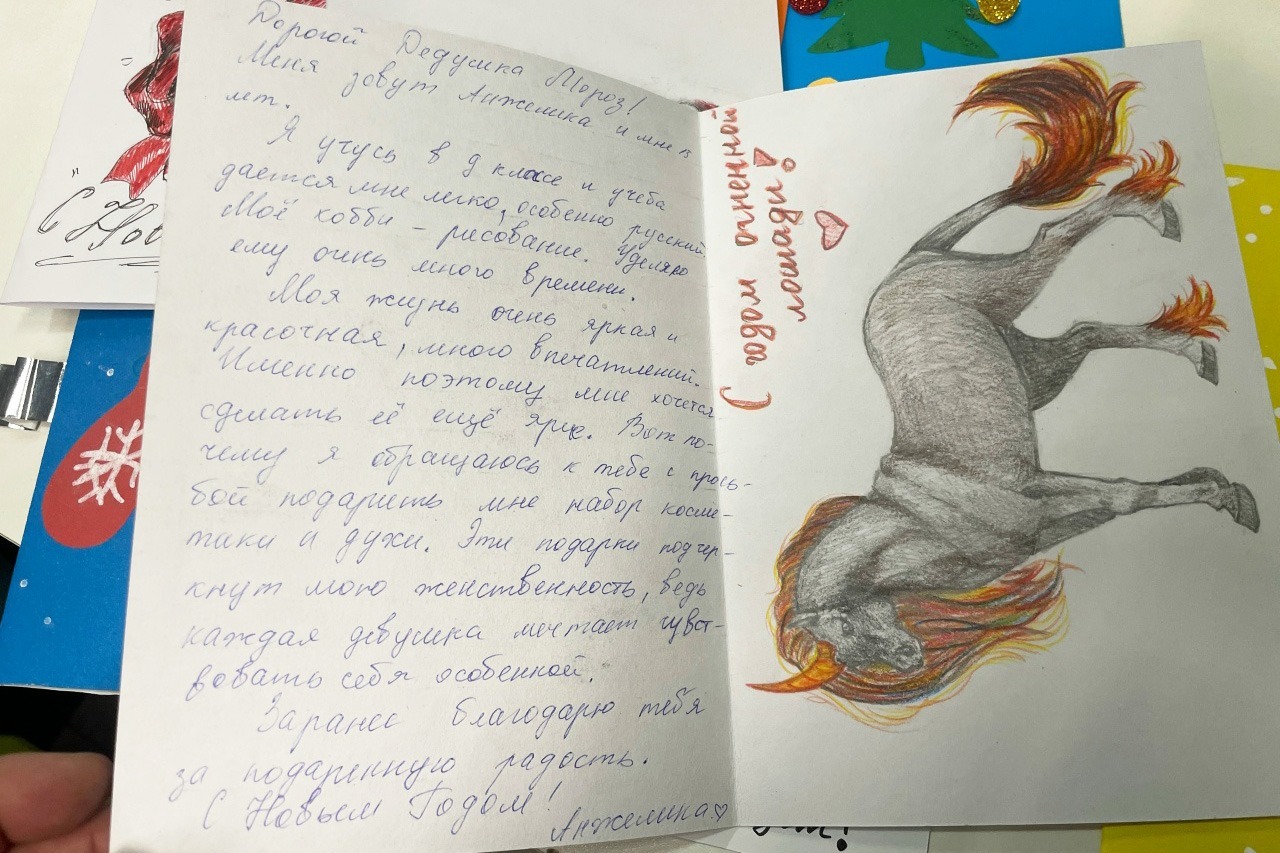 Дорогой Дедушка Мороз!
Меня зовут Анжелика и мне 15
лет.
Я учусь в 9 классе и учеба
даётся мне легко, особенно русский.
Моё хобби – рисование. Уделяю
ему очень много времени.
Моя жизнь очень яркая и
красочная, много впечатлений.
Именно поэтому мне хочется
сделать её ещё ярче. Вот по-
чему я обращаюсь к тебе с прось-
бой подарить мне набор косме-
тики и духи. Эти подарки подчер-
кнут мою женственность, ведь
каждая девушка мечтает чувст-
вовать себя особенной.
Заранее благодарю тебя
за подаренную радость.
С Новым Годом!
Анжелика
С годом огненной
лошади!
С Нов